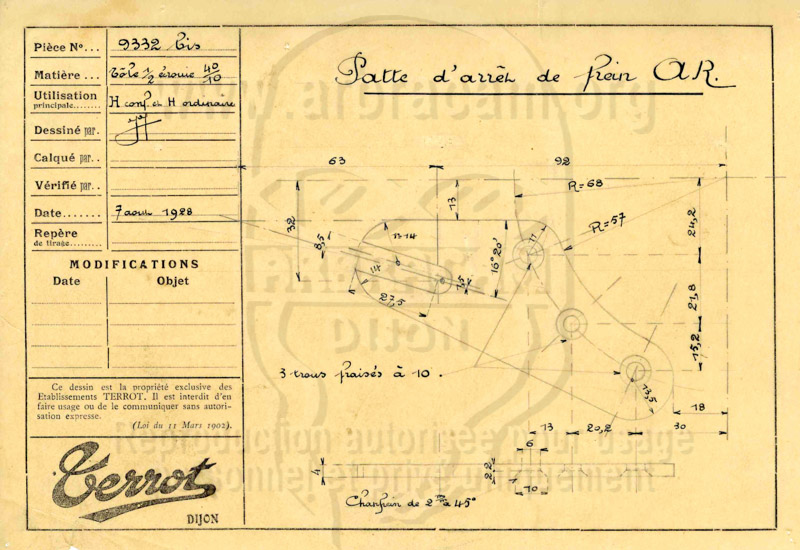 Pièce Nº... 9332 bis
Matière... Tôle 1/2 écrouie 40/10
Utilisation
principale........ H conf et H ordinaire
Dessiné par.
Calqué par..
Vérifié par..
Date....... 7 août 1928
Repère
de tirage.........
MODIFICATIONS
Date Objet
Ce dessin est la propriété exclusive des
Etablissements TERROT. Il est interdit d'en
faire usage ou de le communiquer sans autori-
sation expresse.
(Loi du 11 Mars 1902).
Terrot
DIJON
Patte d'arrêt de frein AR.
www.arbracam.org
63 92
R=68
13
R=57
32
24,2
8,5
R=14
11
16°20'
14
7,5
27,5
21,8
15,2
3 trous fraisés à 10.
13,5
18
13 20,2 30
6
4
2,2
10
Chanfrein de 2 m/m à 45°
DIJON
Reproduction autorisée pour usage
personnel et privé uniquement